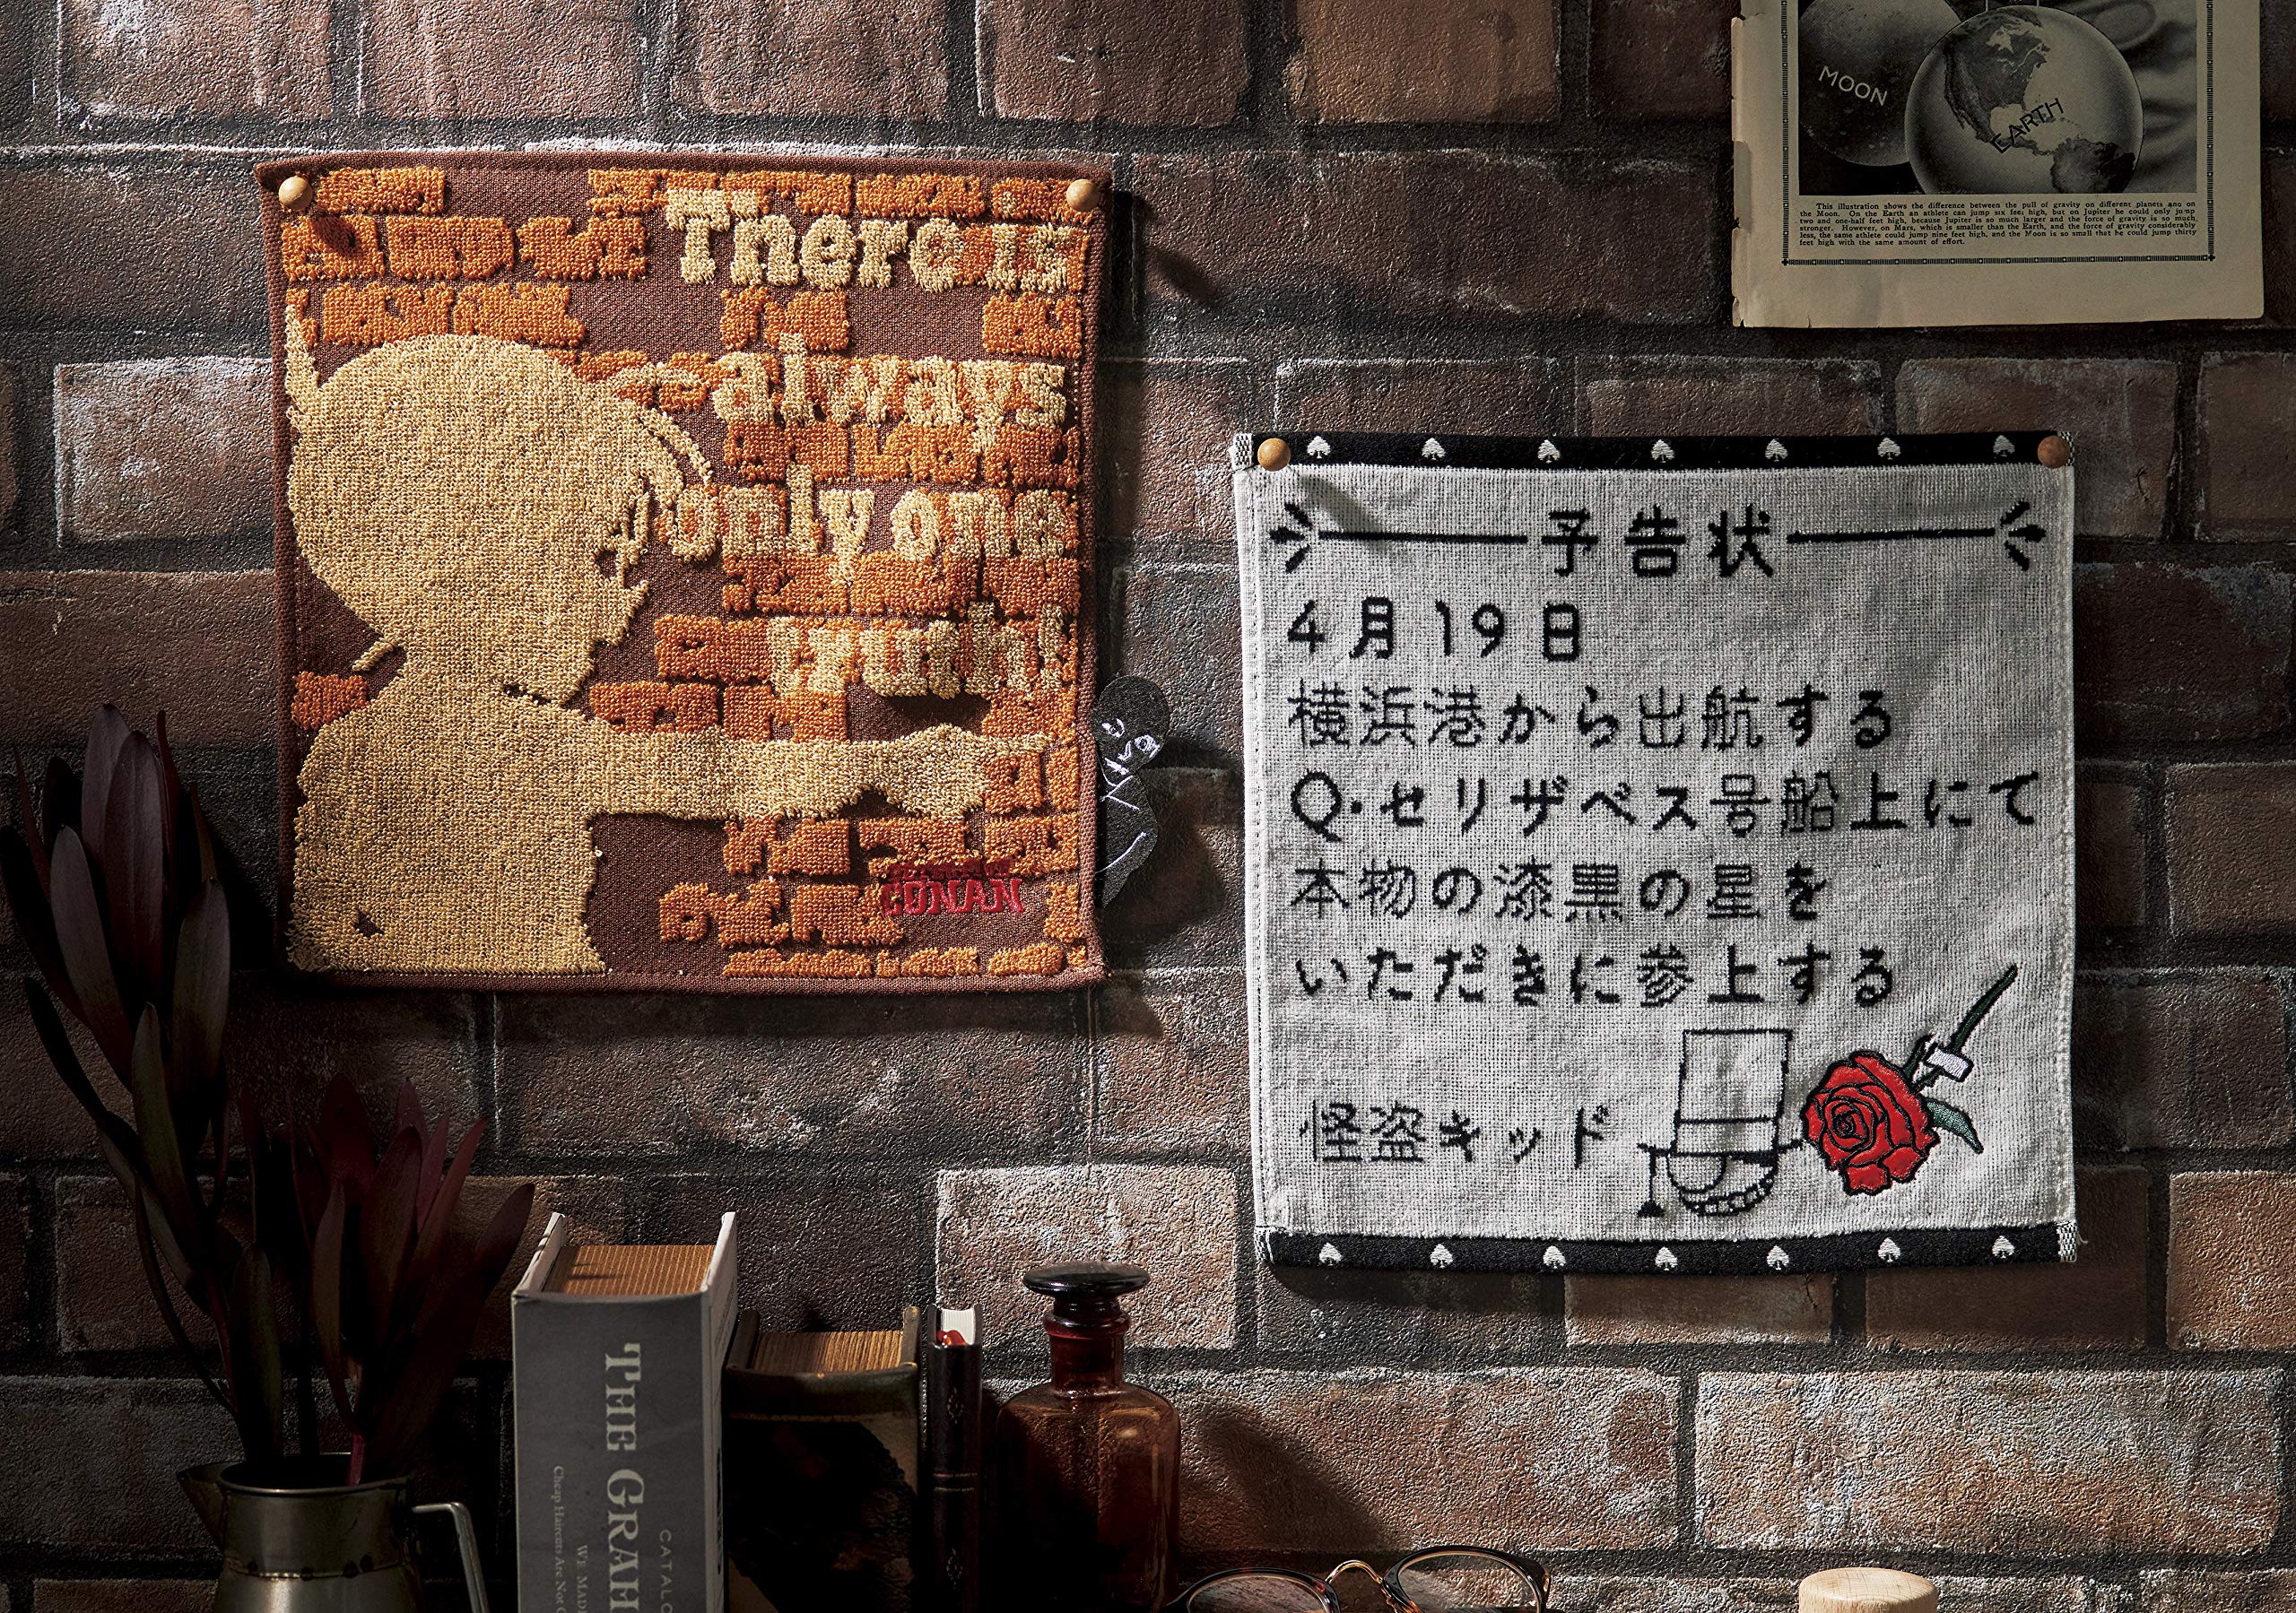 There is
always
only one
truth!
CONAN
MOON
EARTH
This illustration shows the difference between the pull of gravity on different planets and on
the Moon. On the Earth an athlete can jump six feet high, but on Jupiter he could only jump
two and one-half feet high, because Jupiter is so much larger and the force of gravity is so much
stronger. However, on Mars, which is smaller than the Earth, and the force of gravity considerably
less, the same athlete could jump nine feet high, and the Moon is so small that he could jump thirty
feet high with the same amount of effort.
予告状
4月19日
横浜港から出航する
Q・セリザベス号船上にて
本物の漆黒の星を
いただきに参上する
怪盗キッド
THE
CATALO
WE MAD
Cheap Haircut Are Not